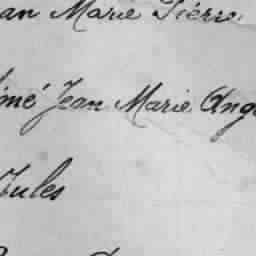 an Marie Pierre
imé Jean Marie Ange
Jules